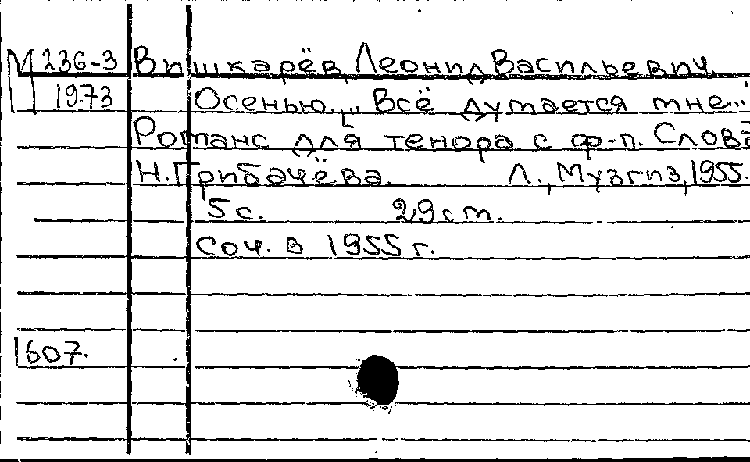 М 236-3 Вишкарёв, Леонид Васильевич
1973 Осенью. „Всё думается мне..."
Романс для тенора с ф-п. Слова
Н. Грибачёва. Л., Музгиз, 1955.
5 с. 29 см.
Соч. в 1955 г.
1607.